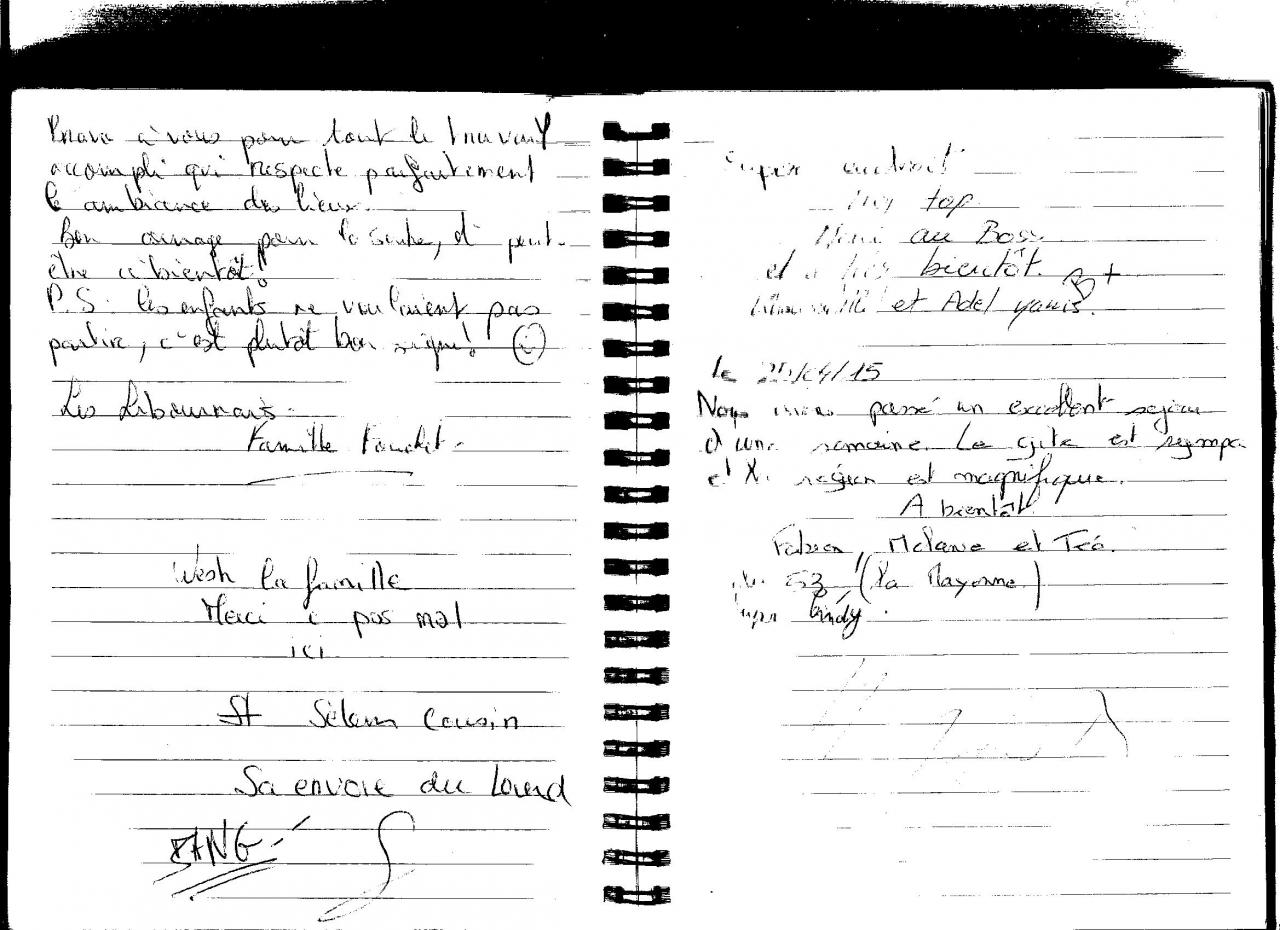 Bravo à vous pour tout le travail
accompli qui respecte parfaitement
l'ambiance des lieux.
Bon courage pour la suite, et peut-
être à bientôt!
P.S: les enfants ne voulaient pas
partir, c'est plutôt bon signe!
Les Libournais.
Famille
Wesh la famille
Merci c pas mal
ici
St Sélam Cousin
Sa envoie du lourd
BANG
Super endroit
très top
Merci au Boss
et à très bientôt.
B+
et Adel yanis.
le 25/04/15
Nous avons passé un excellent sejour
d'une semaine. Le gite est sympa
et la region est magnifique.
A bientôt
Fabien, Melanie et Téo.
53 (la Mayenne)
Super Cindy.